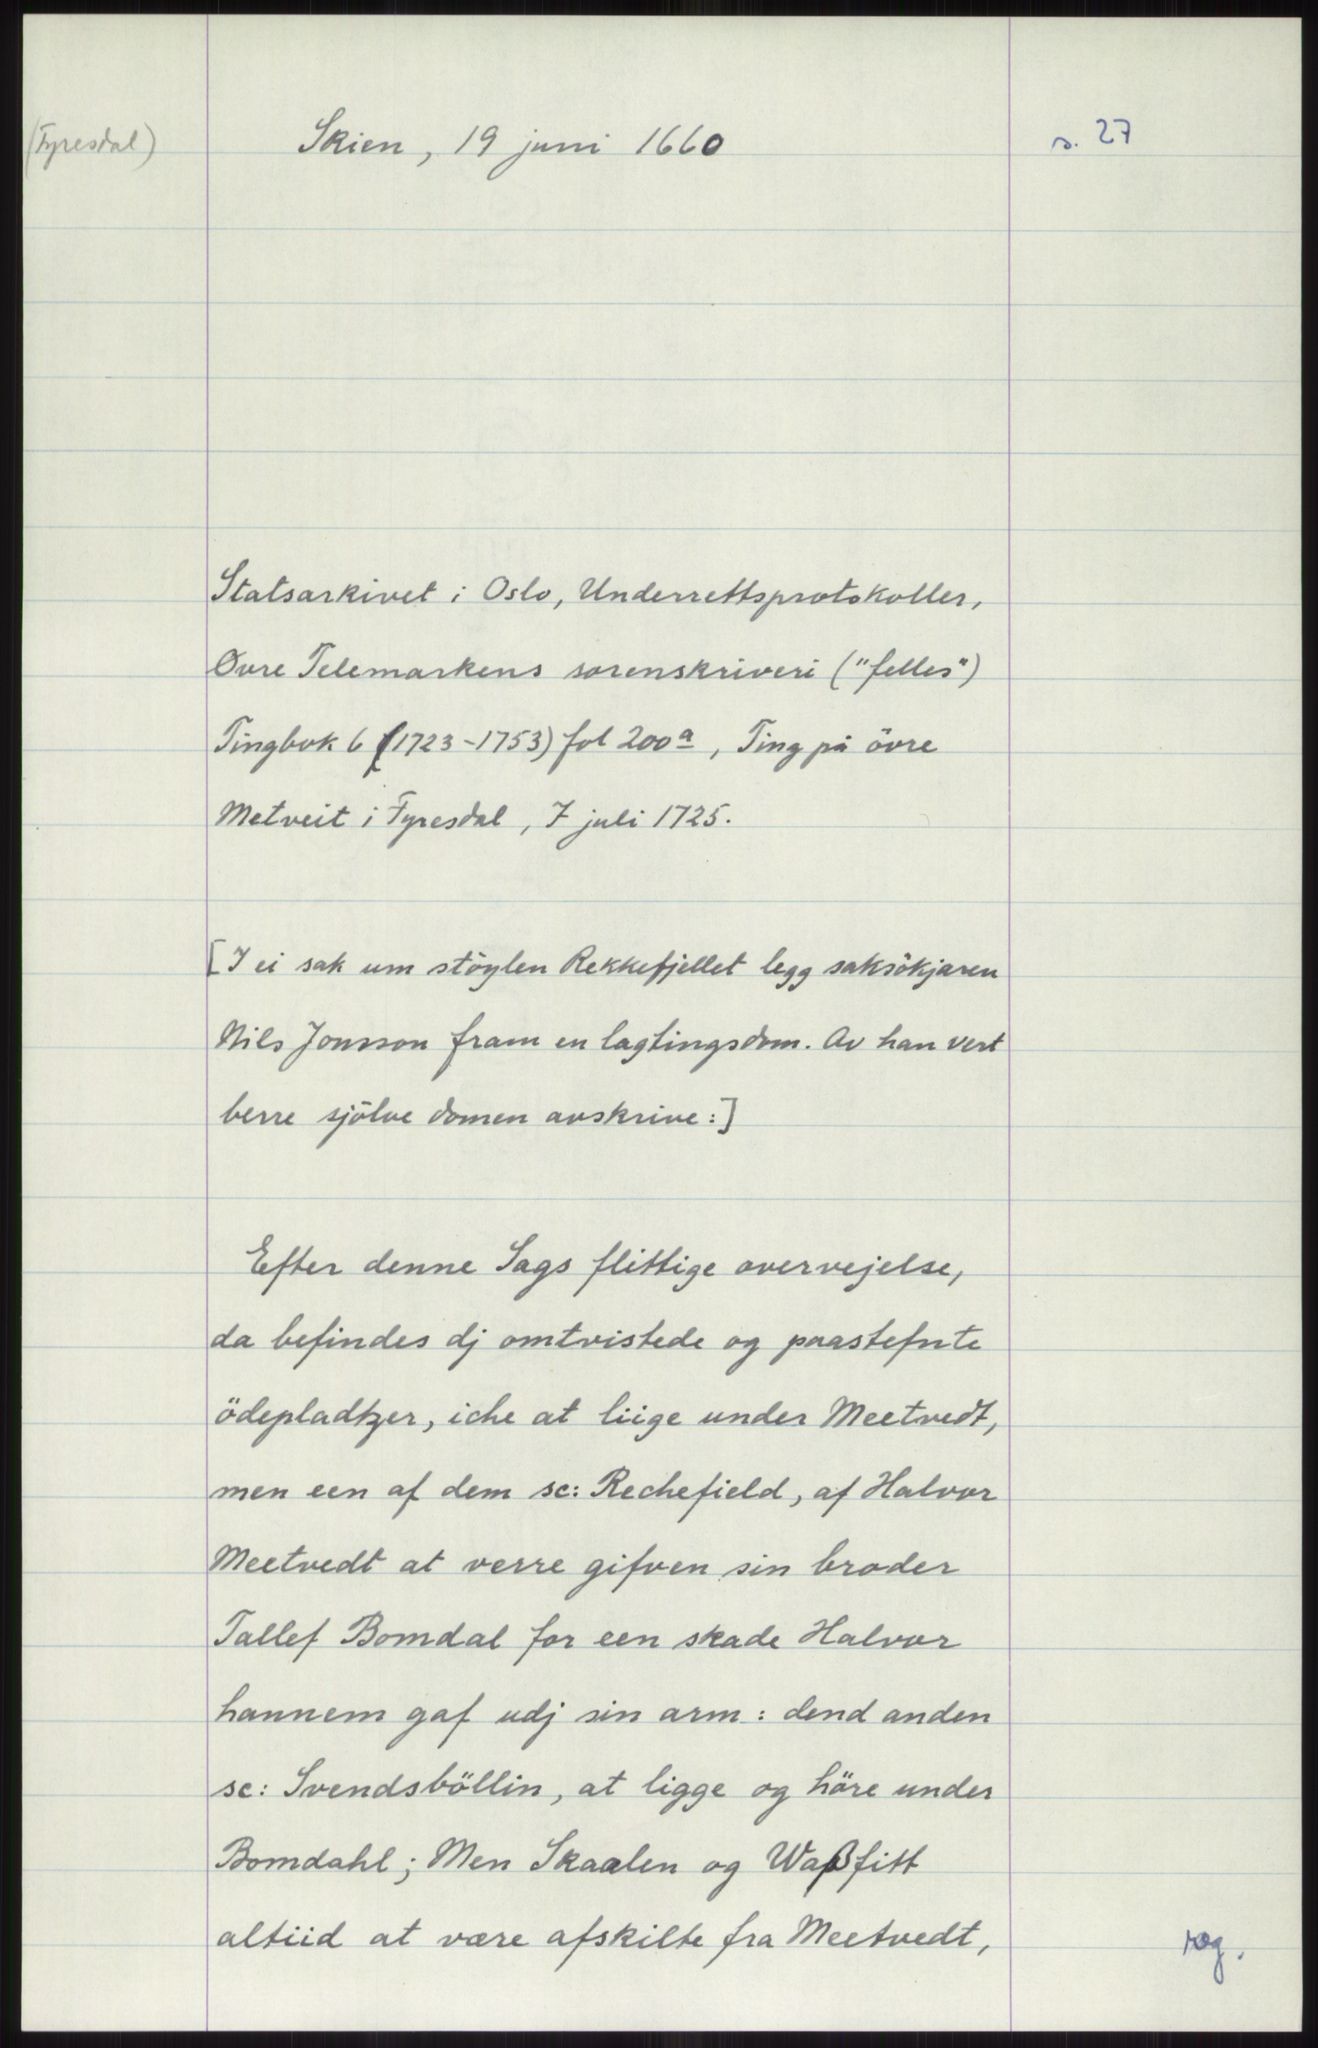 (Fyresdal)
Skien, 19 juni 1660
s. 27
Statsarkivet i Oslo, Underrettsprotokoller,
Øvre Telemarkens sorenskriveri ("felles")
Tingbok 6 (1723-1753) fol 200a, Ting på övre
Metveit i Fyresdal, 7 juli 1725.
[I ei sak um stöylen Rekkefjellet legg saksökjaren
Nils Jonsson fram en lagtingsdom. Av han vert
berre sjölve domen avskrive:]
Efter denne Sags flittige overvejelse,
da befindes dj omtvistede og paastefnte
ödepladtzer, iche at liige under Meetvedt,
men een af dem sc: Rechefield, af Halvor
Meetvedt at verre gifven sin broder
Tallef Bomdal for een skade Halvor
hannem gaf udj sin arm: dend anden
sc: Svendsböllin, at ligge og höre under
Bomdahl; Men Skaalen og Waßfitt
altiid at være afskilte fra Meetvedt,
reg.